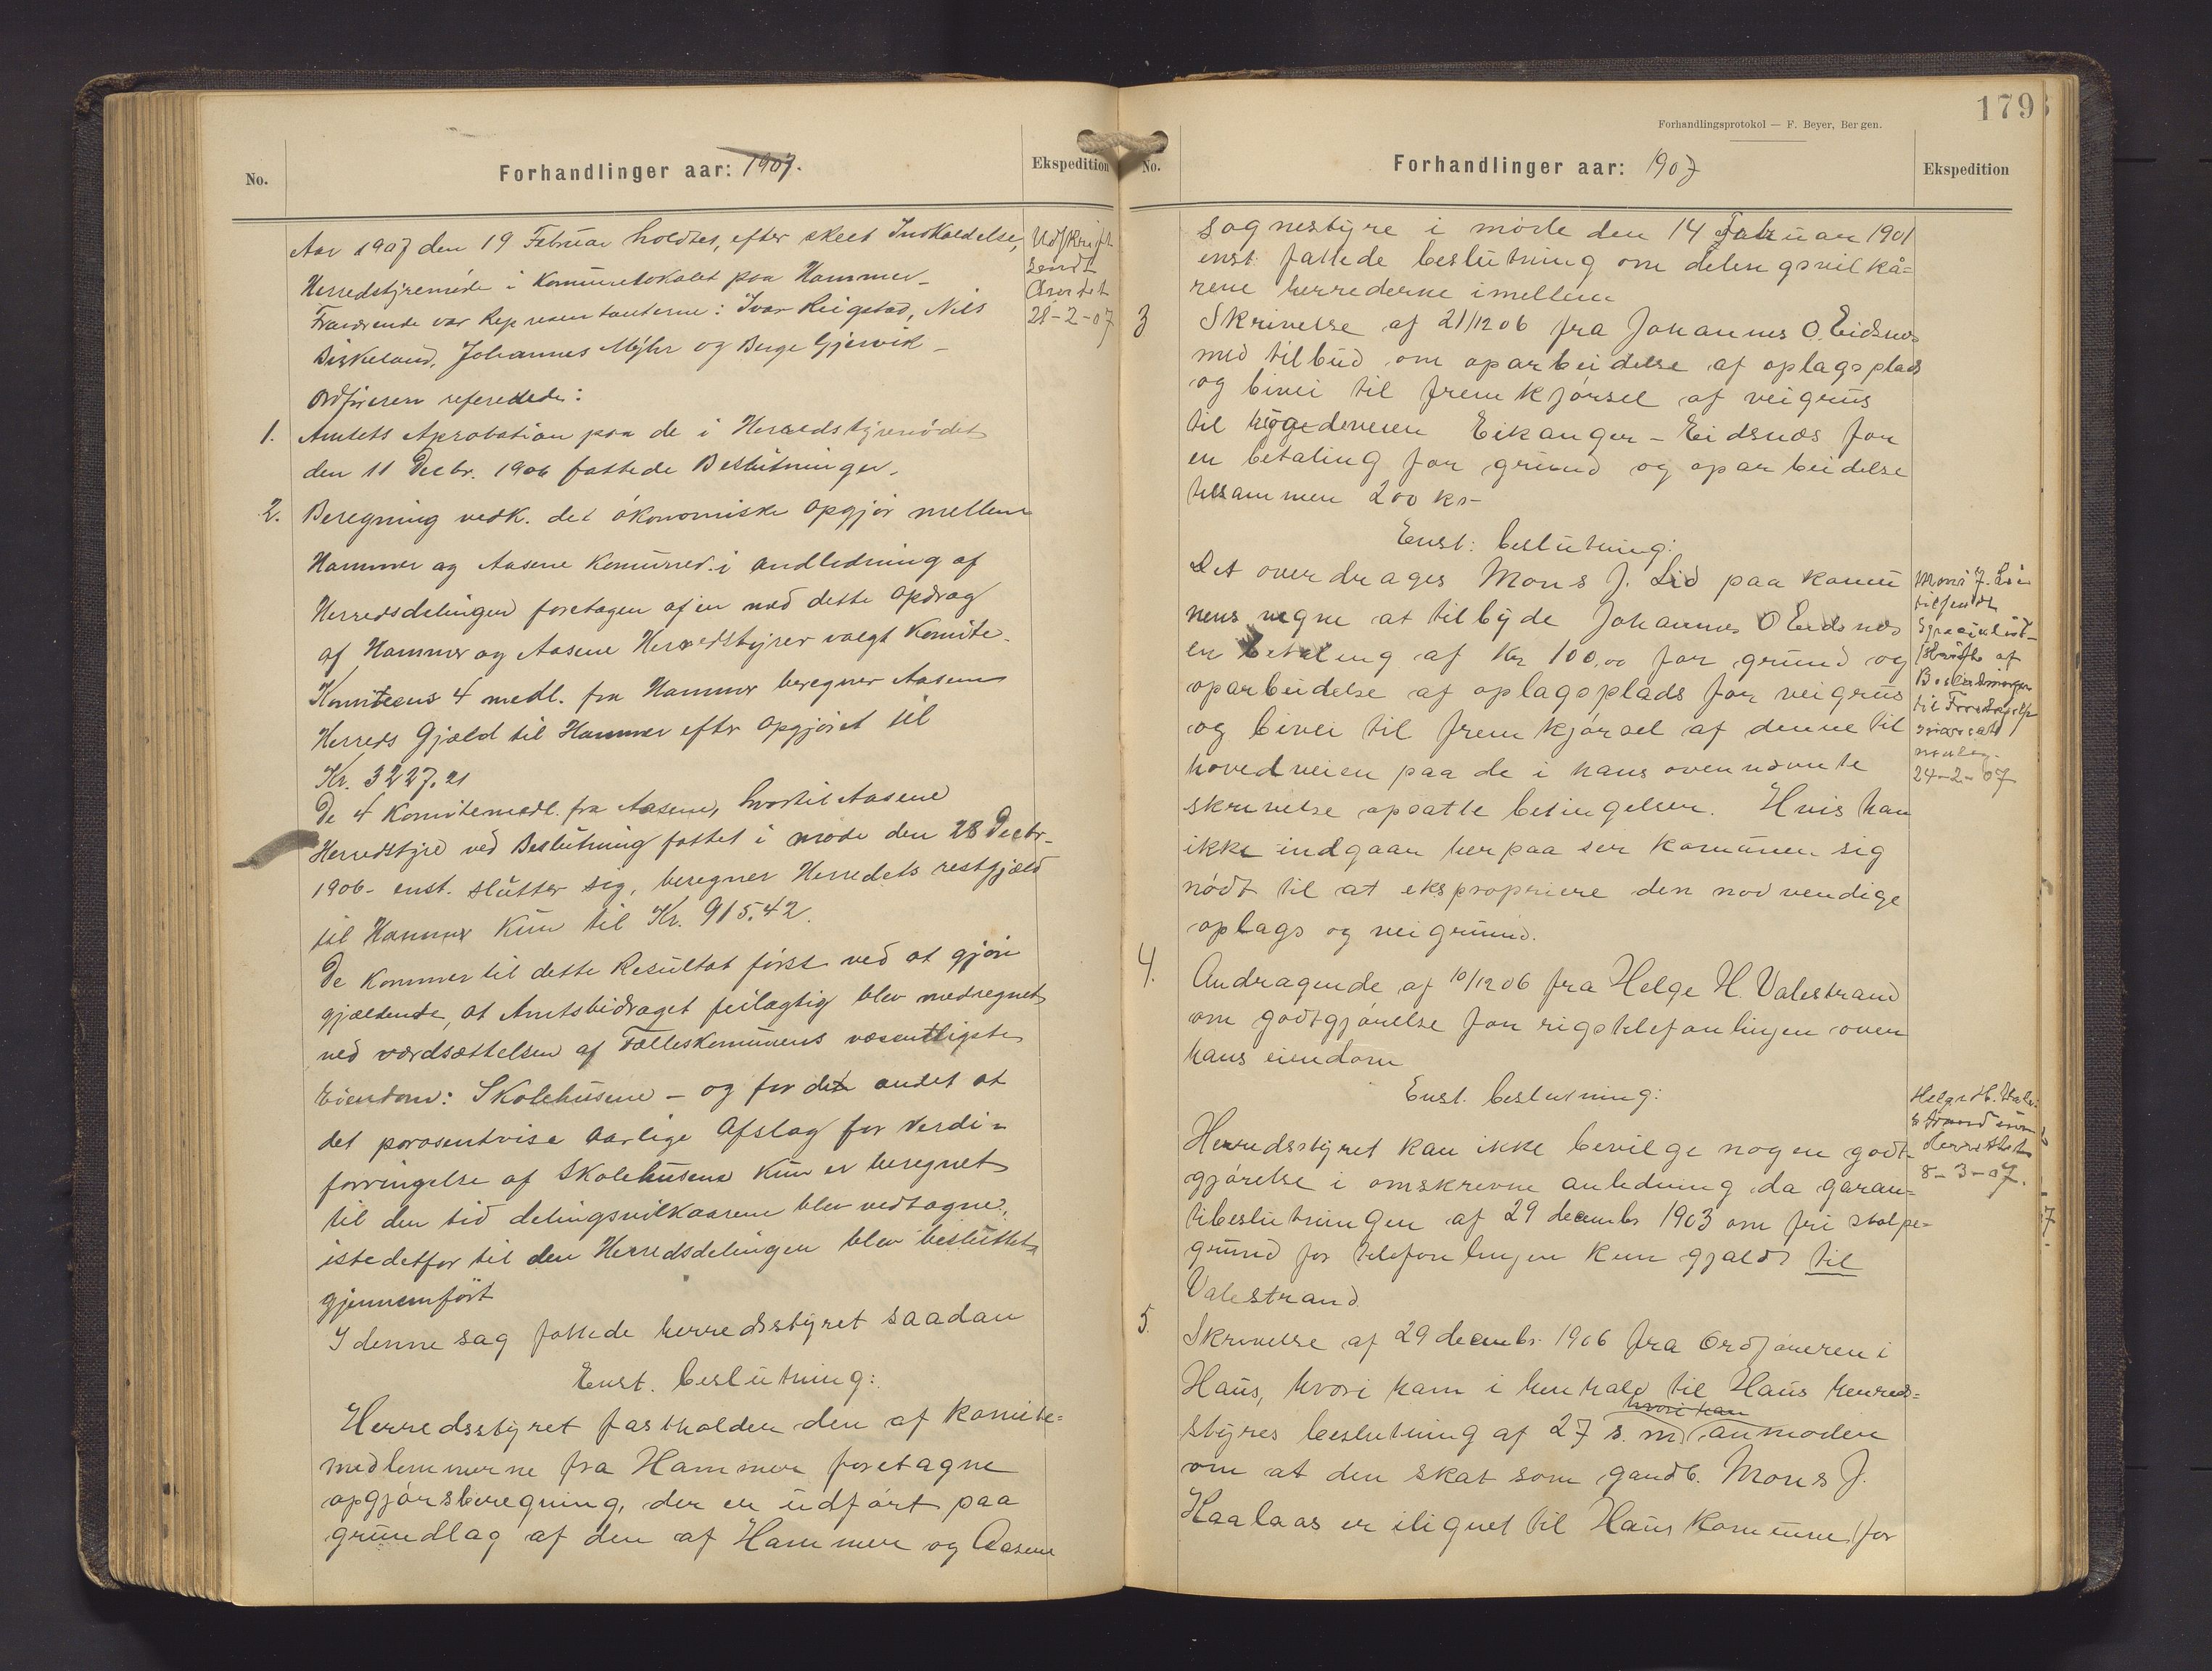 No.
Forhandlinger aar: 1907.
Ekspedition
Aar 1907 den 19 Februar holdtes, efter skeet Indkaldelse,
Herredstyremøde i Komunelokalet paa Hammer-
Fraværende var Representanterne: Ivar Reigstad, Nils
Birkeland, Johannes Myhr og Berge Gjervik-
Ordføreren refererede:
1. Amtets Aprobation paa de i Herredstyremødet
den 11 Decbr. 1906 fattede Beslutninger.
2. Beregning vedk. det økonomiske Opgjør mellem
Hammer og Aasene Komuner i andledning af
Herredsdelingen foretagen af en med dette Opdrag
af Hammer og Aasene Herredstyrer valgt Komite.
Komiteens 4 medl. fra Hammer beregner Aasene
Herreds Gjæld til Hammer efter Opgjøret til
Kr. 3227.21
De 4 Komitemedl. fra Aasene, hvortil Aasene
Herredstyre ved Beslutning fattet i møde den 28 Decbr-
1906- enst. slutter sig, beregner Herredets restgjæld
til Hammer kun til Kr. 915.42.
De kommer til dette Resultat først ved at gjøre
gjældende, at Amtsbidraget feilagtig blev medregnet
ved værdsættelsen af Fælleskomunens væsentligste
Eiendom: Skolehusene - og for det andet at
det porosentvise aarlige Afslag for verdi-
forringelse af Skolehusene kun er beregnet
til den tid delingsvilkaarene blev vedtagne,
istedetfor til den Herredsdelingen blev besluttet
gjennemført
I denne sag fattede herredsstyret saadan
Enst. beslutning:
Herredsstyret fastholder den af komite=
medlemmerne fra Hammer foretagne
opgjørsberegning, der er udført paa
grundlag af den af Hammer og Aasene
Udskrift
sendt
Amtet
28-2-07
179
Forhandlingsprotokol — F. Beyer, Bergen.
No.
Forhandlinger aar: 1907
Ekspedition
sognestyre i møde den 14 Februar 1901
enst. fattede beslutning om delingsvilkå=
rene herrederne imellem
3 Skrivelse af 21/12 06 fra Johannes O. Eidsnes
med tilbud om oparbeidelse af oplagsplads
og bivei til fremkjørsel af veigrus
til bygdeveien Eikanger - Eidsnes for
en betaling for grund og oparbeidelse
tilsammen 200 kr-
Enst: beslutning:
Det overdrages Mons J. Lid paa komu
nens vegne at tilbyde Johannes O Eidsnes
en betaling af Kr 100,00 for grund og
oparbeidelse af oplagsplads for veigrus
og bivei til fremkjørsel af denne til
hovedveien paa de i hans ovennævnte
skrivelse opsatte betingelser. Hvis han
ikke indgaar herpaa ser komunen sig
nødt til at ekspropriere den nødvendige
oplags og veigrund.
Mons J. Lid
tilsendt
af
24-2-07
4. Andragende af 10/12 06 fra Helge H. Valestrand
om godtgjørelse for rigstelefonlinjen over
hans eiendom
Enst. beslutning:
Herredsstyret kan ikke bevilge nogen godt-
gjørelse i omskrevne anledning da garan=
tibeslutningen af 29 decembr 1903 om fri stolpe=
grund for telefonlinjen kun gjaldt til
Valestrand.
Helge H. Vale-
strand un-
derrettet
8-3-07.
5. Skrivelse af 29 decembr 1906 fra Ordføreren i
Haus, hvori ham i henhold til Haus herreds=
hvori han
styres beslutning af 27 s. m anmoder
om at den skat som gaardb. Mons J.
Haalaas er ilignet til Haus komune for